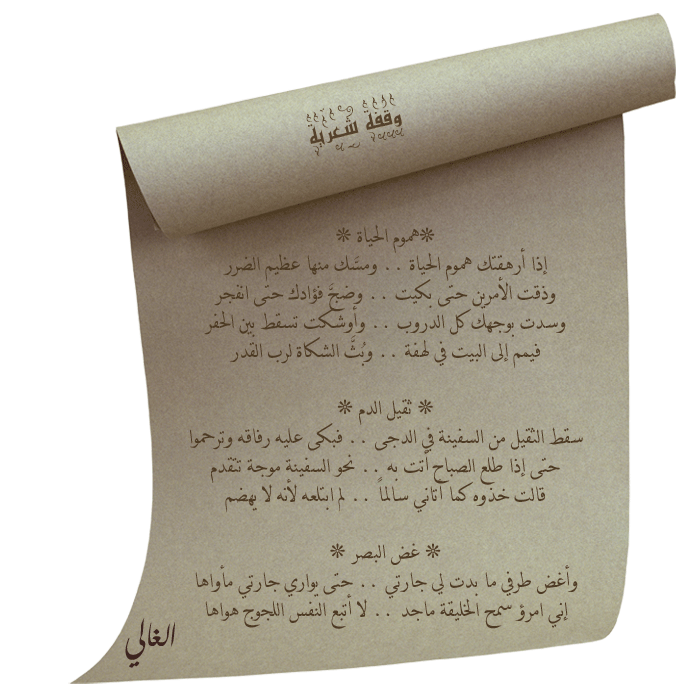 وقفة شعرية
❊هموم الحياة ❊
إذا أرهقتك هموم الحياة . . ومسَّك منها عظيم الضرر
وذقت الأمرين حتى بكيت . . وضجَّ فؤادك حتى انفجر
وسدت بوجهك كل الدروب . . وأوشكت تسقط بين الحفر
فيمم إلى البيت في لهفة . . وبُثَّ الشكاة لرب القدر
❊ ثقيل الدم ❊
سقط الثقيل من السفينة في الدجى . . فبكى عليه رفاقه وترحموا
حتى إذا طلع الصباح أتت به . . نحو السفينة موجة تتقدم
قالت خذوه كما أتاني سالماً . . لم ابتلعه لأنه لا يهضم
❊ غض البصر ❊
وأغض طرفي ما بدت لي جارتي . . حتى يواري جارتي مأواها
إني امرؤ سمح الخليقة ماجد . . لا أتبع النفس اللجوج هواها
الغالي